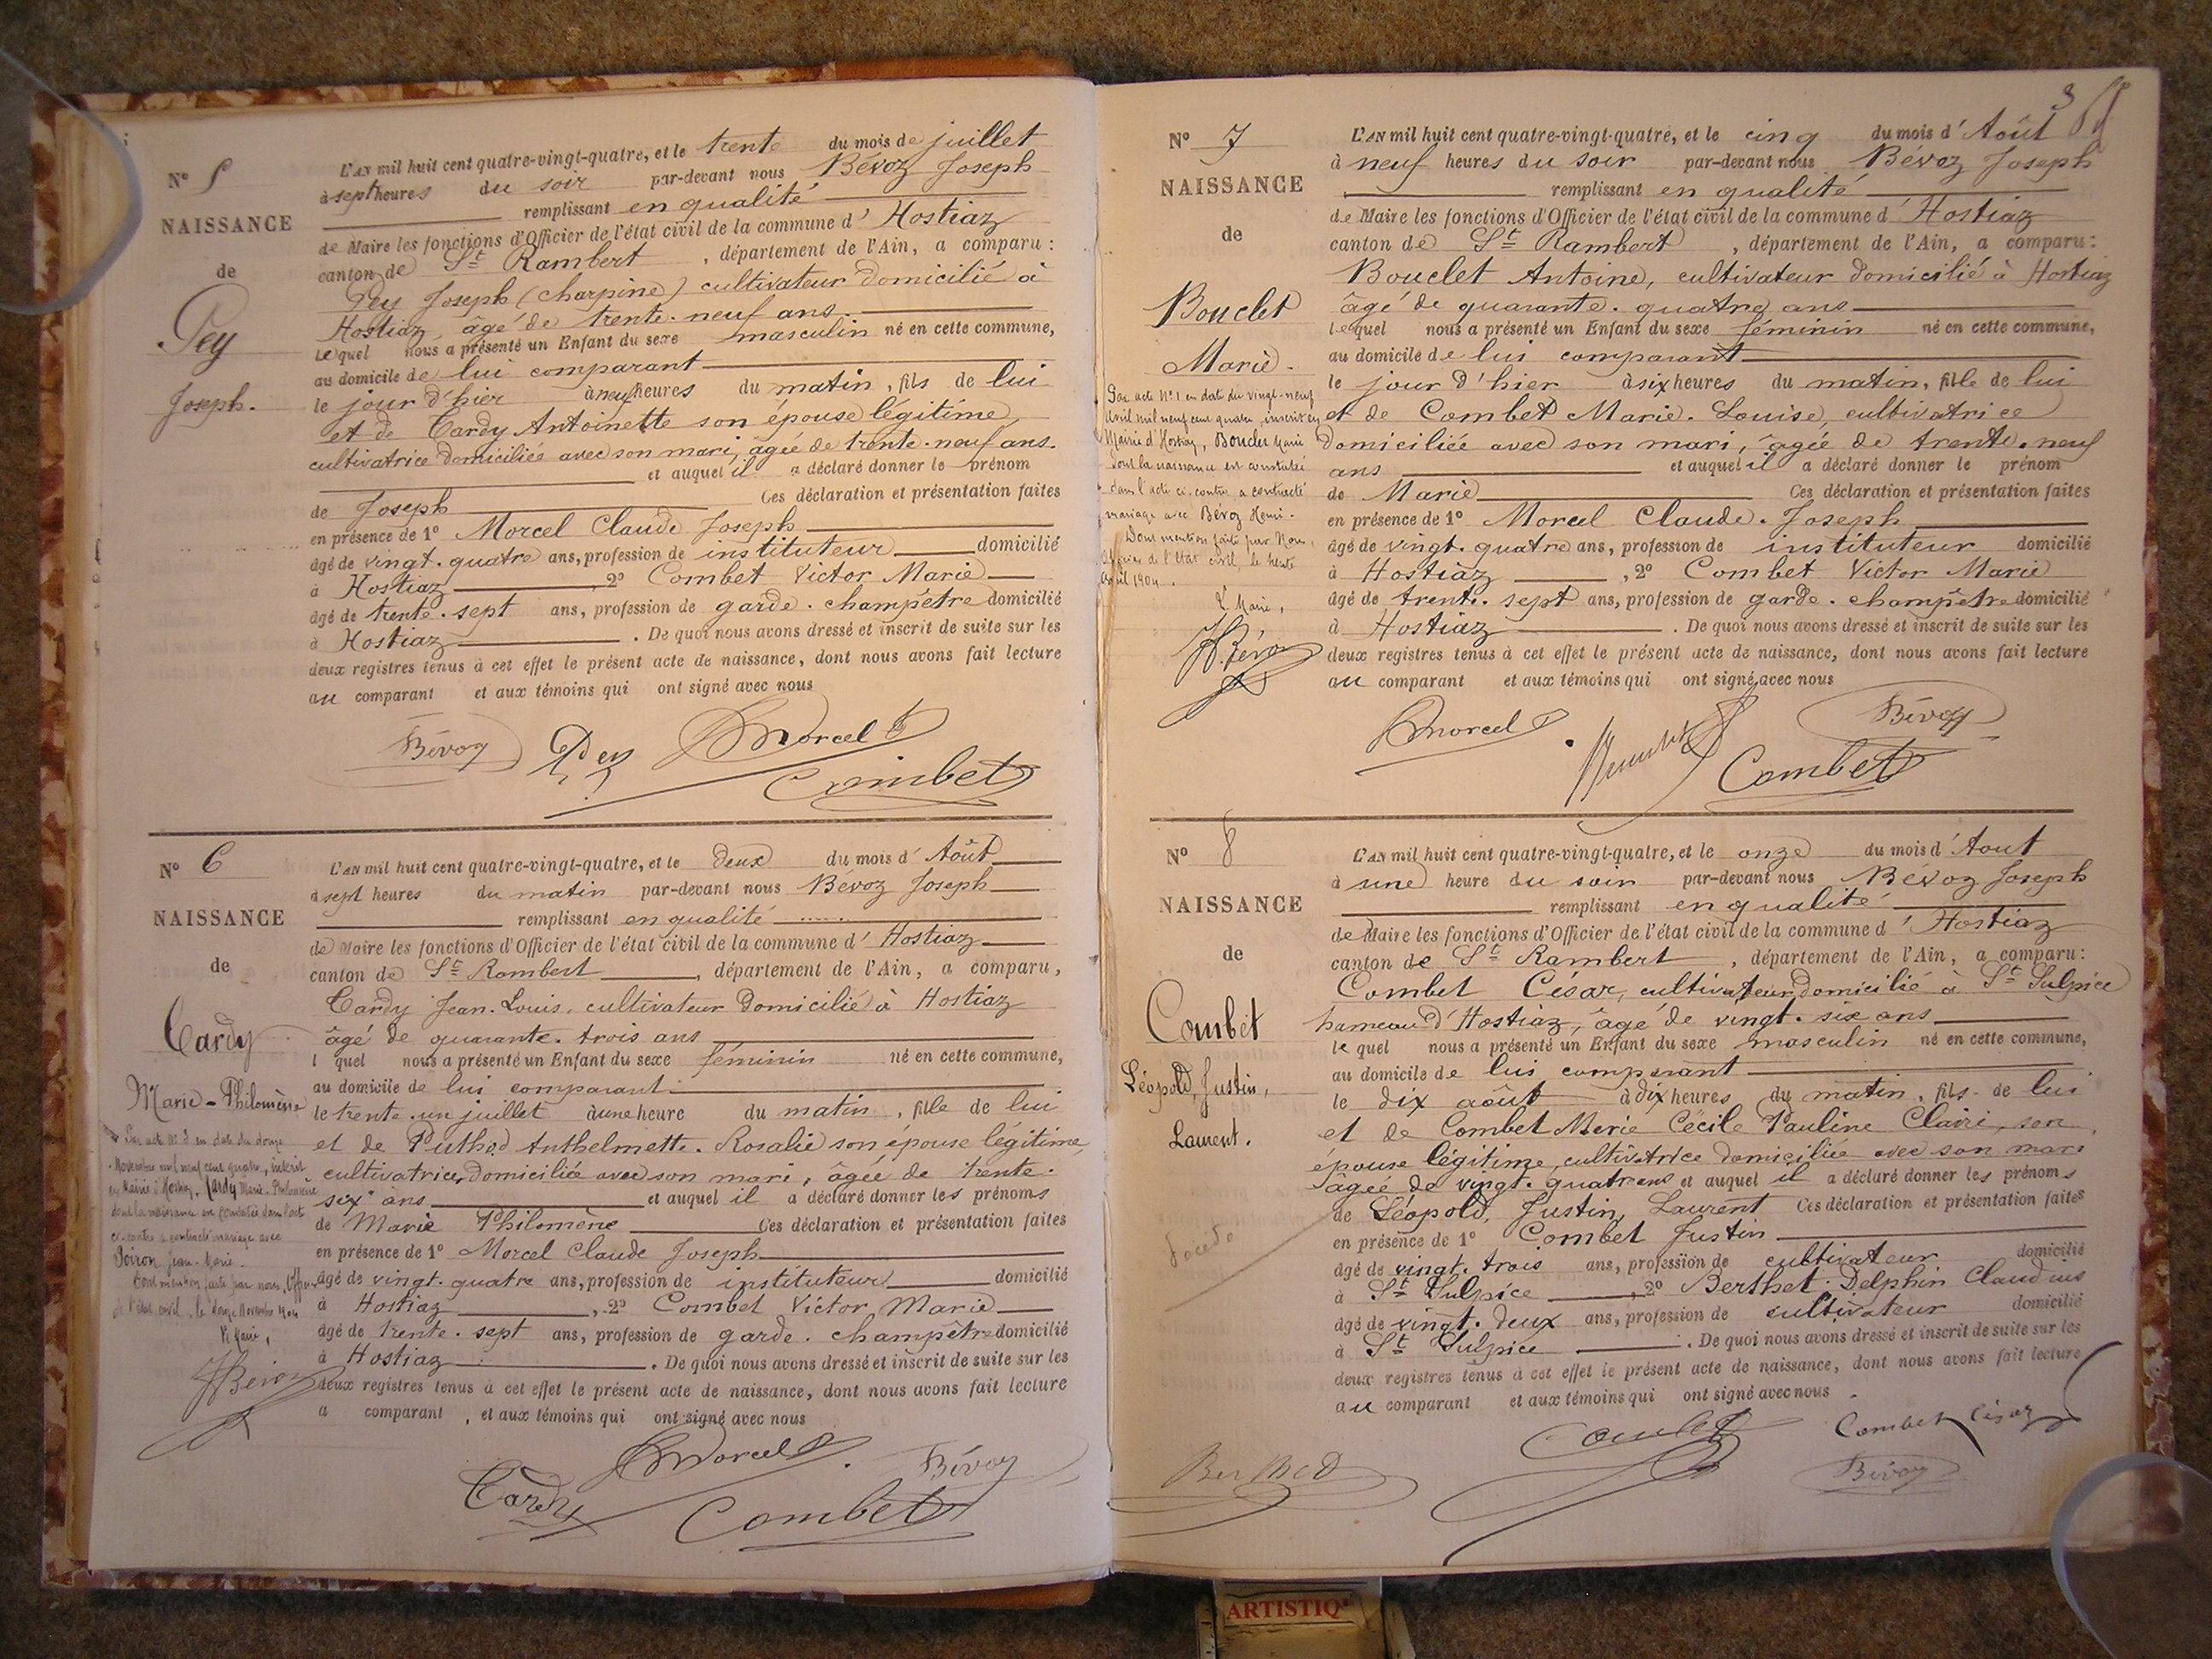 N° 5
NAISSANCE
de
Pey
Joseph.
L'AN mil huit cent quatre-vingt-quatre, et le trente du mois de juillet
à sept heures du soir par-devant nous Bévoz Joseph
remplissant en qualité
de Maire les fonctions d'Officier de l'état civil de la commune d' Hostiaz
canton de St Rambert , département de l'Ain, a comparu :
Pey Joseph (charpine) cultivateur domicilié à
Hostiaz, âgé de trente-neuf ans.
lequel nous a présenté un Enfant du sexe masculin né en cette commune,
au domicile de lui comparant
le jour d'hier à neuf heures du matin, fils de lui
et de Cardy Antoinette son épouse légitime,
cultivatrice domiciliée avec son mari, âgée de trente-neuf ans.
et auquel il a déclaré donner le prénom
de Joseph Ces déclaration et présentation faites
en présence de 1° Morcel Claude Joseph
âgé de vingt-quatre ans, profession de instituteur domicilié
à Hostiaz 2° Combet Victor Marie
âgé de trente-sept ans, profession de garde-champêtre domicilié
à Hostiaz . De quoi nous avons dressé et inscrit de suite sur les
deux registres tenus à cet effet le présent acte de naissance, dont nous avons fait lecture
au comparant et aux témoins qui ont signé avec nous
Bévoz Pey Morcel
Combet
N° 6
NAISSANCE
de
Cardy
Marie-Philomène
Par acte N° 3 en date du douze
Novembre mil neuf cent quatre, inscrit
en Mairie d'Hostiaz, Cardy Marie-Philomène
dont la naissance est constatée dans l'acte
ci-contre a contracté mariage avec
Poiron Jean-Marie.
Dont mention faite par nous, Officier
de l'état civil, le douze Novembre 1904
Le Maire,
Bévoz
L'AN mil huit cent quatre-vingt-quatre, et le deux du mois d' Août
à sept heures du matin par-devant nous Bévoz Joseph
remplissant en qualité
de Maire les fonctions d'Officier de l'état civil de la commune d' Hostiaz
canton de St Rambert , département de l'Ain, a comparu,
Cardy Jean-Louis, cultivateur domicilié à Hostiaz
âgé de quarante-trois ans
l quel nous a présenté un Enfant du sexe féminin né en cette commune,
au domicile de lui comparant
le trente-un juillet à une heure du matin, fille de lui
et de Puthod Anthelmette-Rosalie son épouse légitime,
cultivatrice, domiciliée avec son mari, âgée de trente-
six ans et auquel il a déclaré donner les prénoms
de Marie Philomène Ces déclaration et présentation faites
en présence de 1° Morcel Claude Joseph
âgé de vingt-quatre ans, profession de instituteur domicilié
à Hostiaz , 2° Combet Victor Marie
âgé de trente-sept ans, profession de garde-champêtre domicilié
à Hostiaz . De quoi nous avons dressé et inscrit de suite sur les
deux registres tenus à cet effet le présent acte de naissance, dont nous avons fait lecture
a comparant , et aux témoins qui ont signé avec nous
Morcel
Cardy Combet Bévoz
3
N° 7
NAISSANCE
de
Bouclet
Marie.
Par acte N° 1 en date du vingt-neuf
Avril mil neuf cent quatre, inscrit en
Mairie d'Hostiaz, Bouclet Marie
dont la naissance est constatée
dans l'acte ci-contre, a contracté
mariage avec Bévoz Henri.
Dont mention faite par Nous,
Officier de l'état civil, le trente
Avril 1904.
Le Maire,
Bévoz
L'AN mil huit cent quatre-vingt-quatre, et le cinq du mois d' Août
à neuf heures du soir par-devant nous Bévoz Joseph
remplissant en qualité
de Maire les fonctions d'Officier de l'état civil de la commune d' Hostiaz
canton de St Rambert , département de l'Ain, a comparu :
Bouclet Antoine, cultivateur domicilié à Hostiaz
âgé de quarante-quatre ans
lequel nous a présenté un Enfant du sexe féminin né en cette commune,
au domicile de lui comparant
le jour d'hier à six heures du matin, fille de lui
et de Combet Marie-Louise, cultivatrice
domiciliée avec son mari, âgée de trente-neuf
ans et auquel il a déclaré donner le prénom
de Marie Ces déclaration et présentation faites
en présence de 1° Morcel Claude-Joseph
âgé de vingt-quatre ans, profession de instituteur domicilié
à Hostiaz , 2° Combet Victor Marie
âgé de trente-sept ans, profession de garde-champêtre domicilié
à Hostiaz . De quoi nous avons dressé et inscrit de suite sur les
deux registres tenus à cet effet le présent acte de naissance, dont nous avons fait lecture
au comparant et aux témoins qui ont signé avec nous
Morcel Bévoz
Combet
N° 8
NAISSANCE
de
Combet
Léopold, Justin,
Laurent.
Décédé
L'AN mil huit cent quatre-vingt-quatre, et le onze du mois d' Aout
à une heure du soir par-devant nous Bévoz Joseph
remplissant en qualité
de Maire les fonctions d'Officier de l'état civil de la commune d' Hostiaz
canton de St Rambert , département de l'Ain, a comparu :
Combet César, cultivateur domicilié à St Sulpice
hameau d'Hostiaz, âgé de vingt-six ans
le quel nous a présenté un Enfant du sexe masculin né en cette commune,
au domicile de lui comparant
le dix août à dix heures du matin, fils de lui
et de Combet Marie Cécile Pauline Claire, son
épouse légitime, cultivatrice domiciliée avec son mari
âgée de vingt-quatre ans et auquel il a déclaré donner les prénoms
de Léopold, Justin, Laurent Ces déclaration et présentation faites
en présence de 1° Combet Justin
âgé de vingt-trois ans, profession de cultivateur domicilié
à St Sulpice , 2° Berthet Delphin Claudius
âgé de vingt-deux ans, profession de cultivateur domicilié
à St Sulpice . De quoi nous avons dressé et inscrit de suite sur les
deux registres tenus à cet effet le présent acte de naissance, dont nous avons fait lecture
au comparant et aux témoins qui ont signé avec nous .
Combet Combet César
Berthet Bévoz
ARTISTIQ